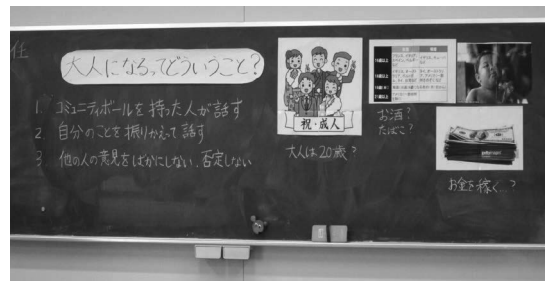 任
大人になるってどういうこと?
1. コミュニティボールを持った人が話す
2. 自分のことを振りかえって話す
3. 他の人の意見をばかにしない、否定しない
祝・成人
大人は20歳?
お酒?
たばこ?
お金を稼ぐ…?